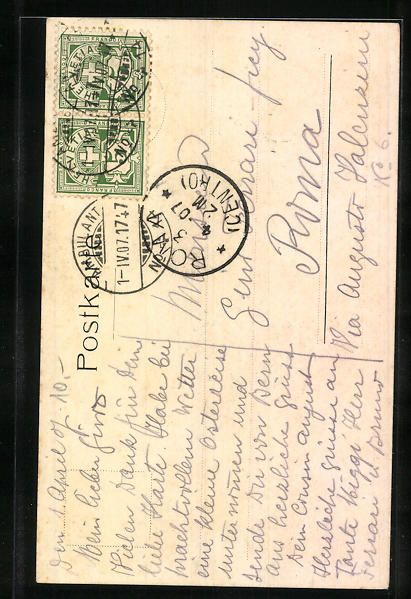 Postkarte
HELVETIA
FRANCO
HELVETIA
FRANCO
AMBULANT
1-IV.07.17-47
ROMA (CENTRO)
3 4 07
2 M
frey
Roma
Via Augusto
No 6.
den 1. April 07. 10.–
Mein lieber
Vielen Dank für Dein
liebe Karte. Habe bei
prachtvollem Wetter
eine kleine Osterreise
unternommen und
sende Dir von Bern
aus herzliche Grüsse
Dein Cousin August
Herzliche Grüsse an
Tante Heggi Herr
Ferrari & Bruno